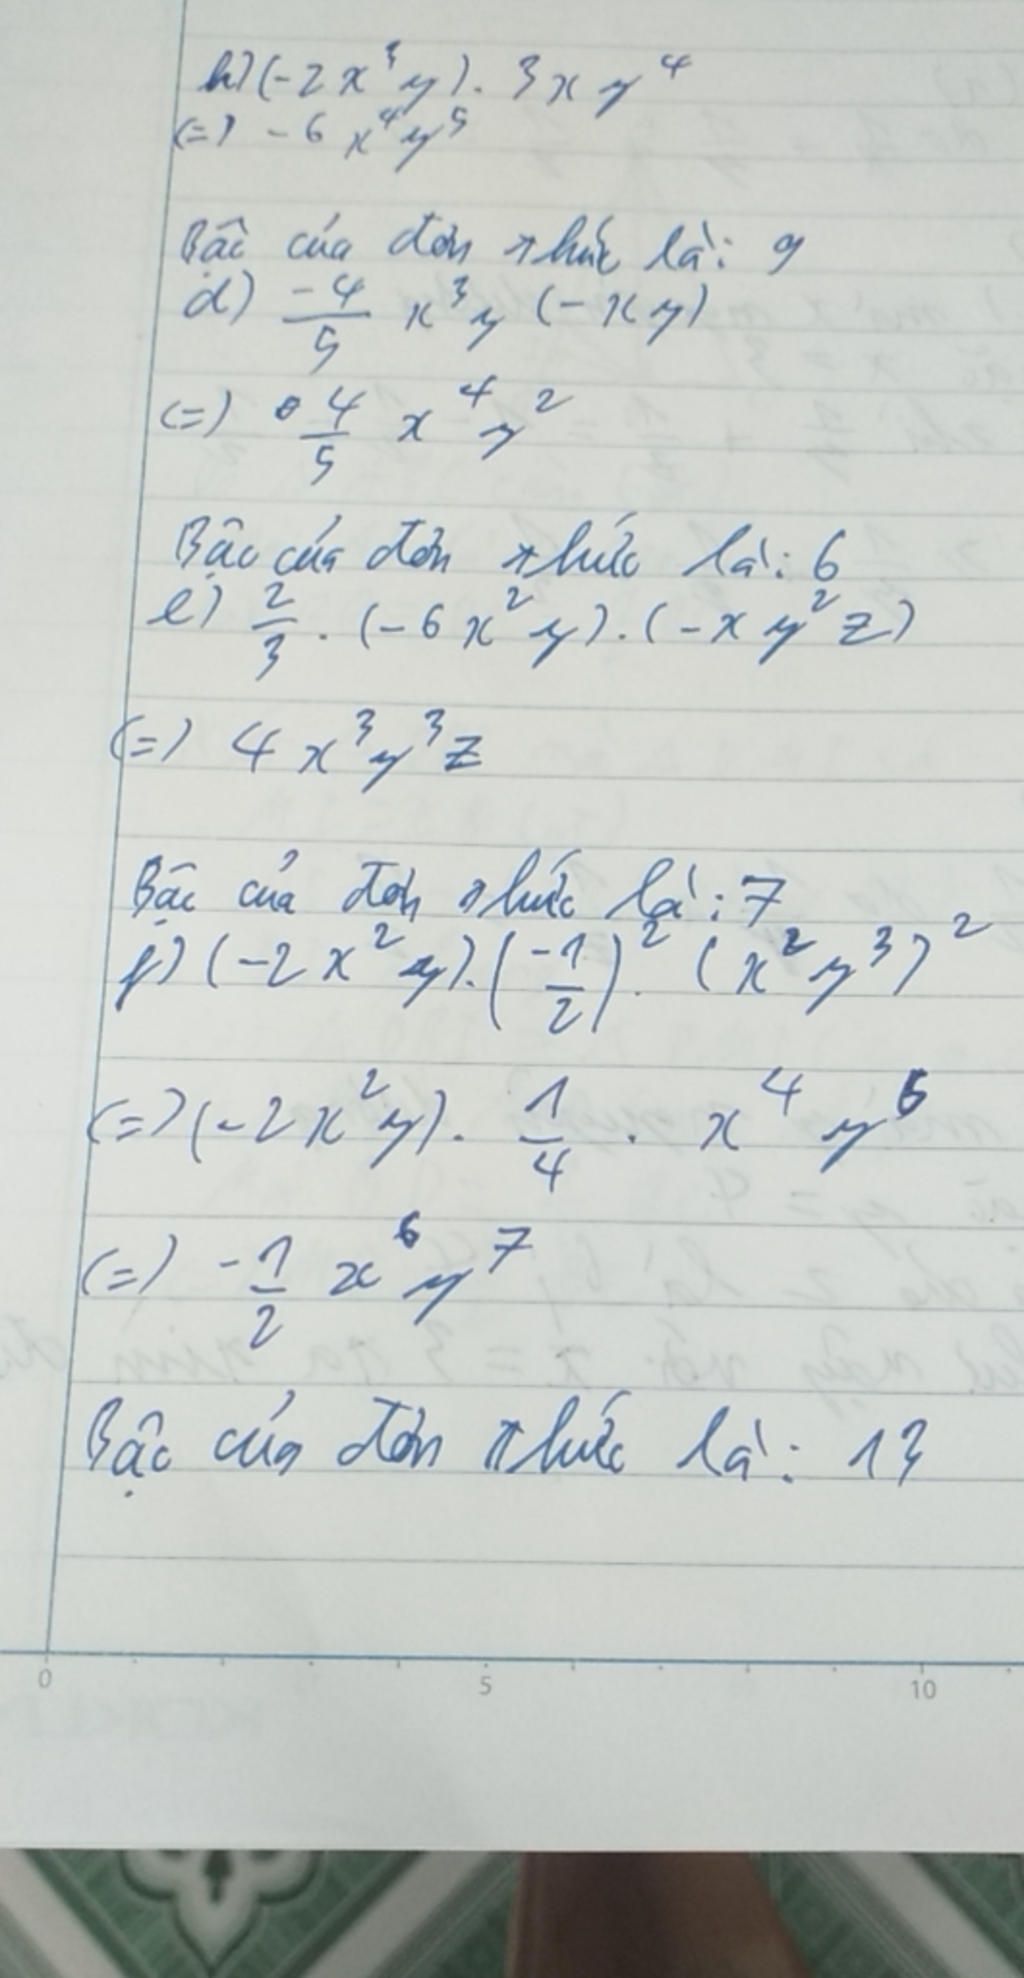 b) (-2x³y). 3xy⁴
(=) -6x⁴y⁵
Bậc của đơn thức là: 9
d) -4/5 x³y (-xy)
(=) 4/5 x⁴y²
Bậc của đơn thức là: 6
e) 2/3 . (-6x²y).(-xy²z)
(=) 4x³y³z
Bậc của đơn thức là: 7
f) (-2x²y).(-1/2)². (x²y³)²
(=) (-2x²y). 1/4 . x⁴y⁶
(=) -1/2 x⁶y⁷
Bậc của đơn thức là: 13
0 5 10